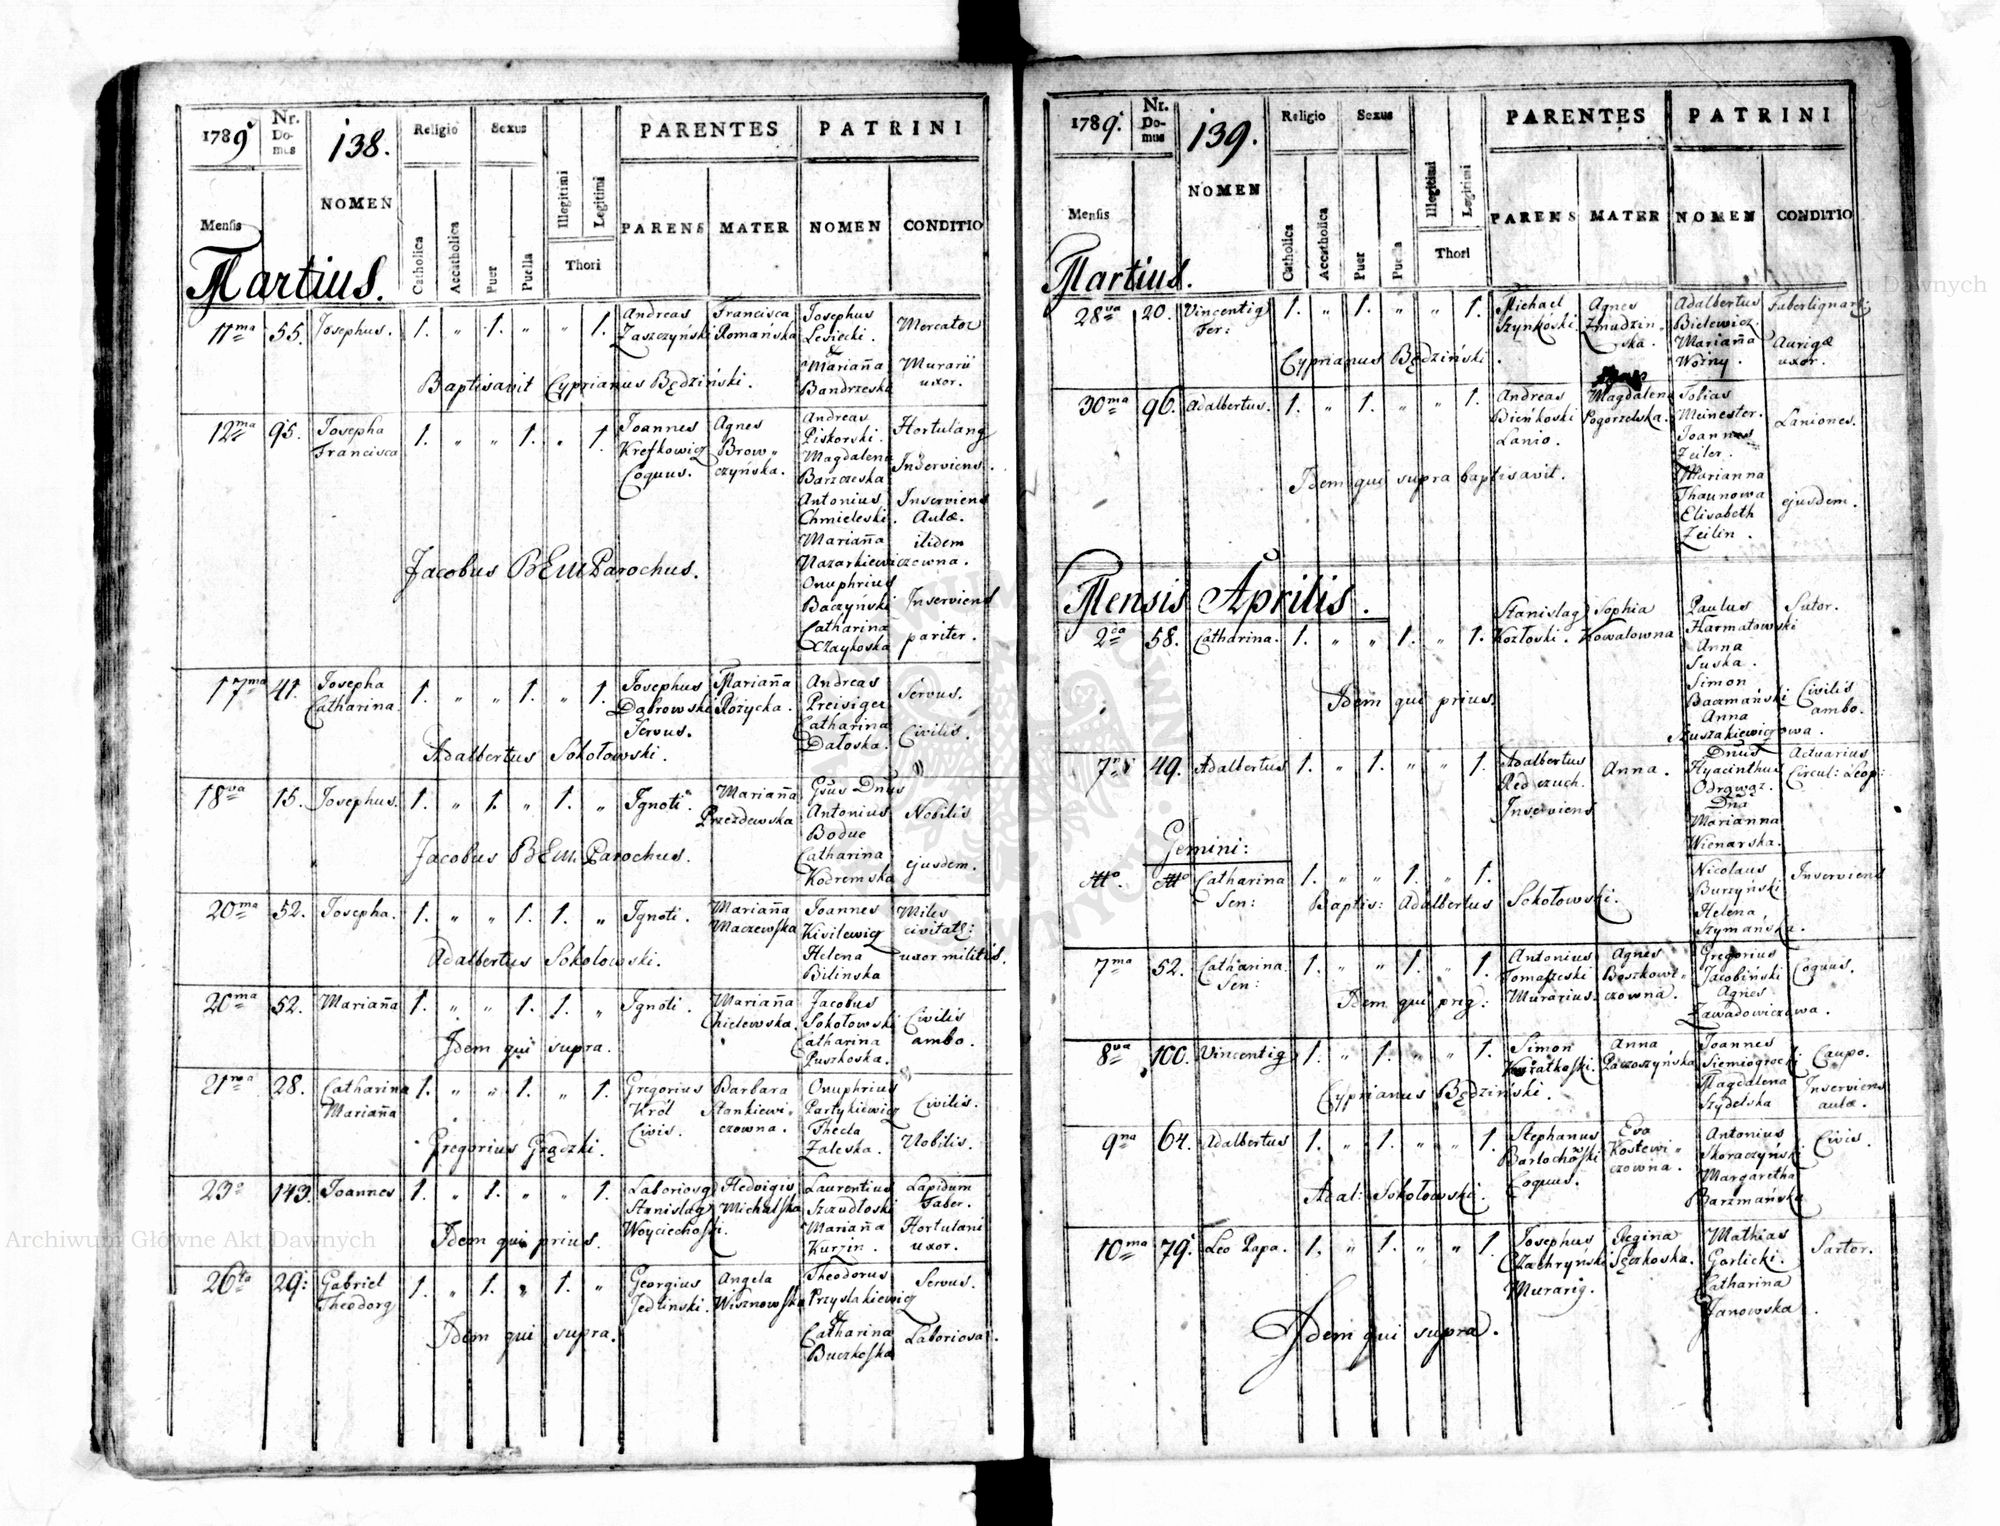 1789.
Nr. Domus
138.
NOMEN
Religio
Sexus
PARENTES
PATRINI
Mensis
Catholica
Accatholica
Puer
Puella
Illegitimi
Legitimi
Thori
PARENS MATER NOMEN CONDITIO
Martius.
11ma 55. Josephus. 1. " 1. " " 1. Andreas Francisca Josephus Mercator
Zaszczyński Romańska Lesiecki.
&
Mariana Murarii
Bandrzeska uxor.
Baptisavit Cyprianus Będziński.
12ma 95. Josepha 1. " " 1. " 1. Joannes Agnes Andreas Hortulang
Francisca Krefkowicz Brow„ Piskorski.
Coquus. czyńska. Magdalena Inserviens.
Barzczeska
Antonius Inserviens
Chmieleski. Aulæ.
Mariana itidem
Nazarkiewiczowna.
Jacobus BEm Parochus.
Onuphrius
Baczyński Inserviens
Catharina pariter.
Czaykoska
17ma 41. Josepha 1. " " 1. " 1. Josephus Mariana Andreas Servus.
Catharina. Dąbrowski Rozycka. Preisiger
Servus. Catharina Civilis.
Datoska.
Adalbertus Sokołowski.
18va 15. Josephus. 1. " 1. " 1. " Ignoti. Mariana Gsus Dnus
Przezdewska Antonius Nobilis
Bodue
Catharina ejusdem.
Kodremska
Jacobus BEm Parochus.
20ma 52. Josepha. 1. " " 1. 1. " Ignoti. Mariana Joannes Miles
Maczewska Kisilewicz civitatę:
Helena uxor militis.
Bilinska
Adalbertus Sokolowski.
20ma 52. Mariana 1. " " 1. 1. " Ignoti. Mariana Jacobus Civilis
Chielewska. Sokołowski ambo.
Catharina
Puszkoska.
Idem qui supra.
21ma 28. Catharina 1. " " 1. " 1. Gregorius Barbara Onuphrius
Mariana Król Stankiewi„ Partykiewicz Civilis.
Civis. czowna. Thecla
Zaleska. Nobilis.
Gregorius Grądzki.
23a 143. Joannes 1. " 1. " " 1. Laboriosg Hedvigis Laurentius Lapidum
Stanislag Michalska Szczudłoski Faber.
Woyciechoski. Mariana Hortulani
Kurzin. uxor.
Idem qui prius.
26ta 29. Gabriel 1. " 1. " 1. " Georgius Angela Theodorus Servus.
Theodorg Jedliński. Wisznowska Przysłakiewicz
&
Catharina Laboriosa.
Buczkoska
Idem qui supra.
1789.
Nr. Domus
139.
NOMEN
Religio
Sexus
PARENTES
PATRINI
Mensis
Catholica
Accatholica
Puer
Puella
Illegitimi
Legitimi
Thori
PARENS MATER NOMEN CONDITIO
Martius.
28va 20. Vincentig 1. " 1. " " 1. Michael Agnes Adalbertus Faberlignari:
Fer: Szynkoski. Zmudzin„ Bielewicz.
ska. Mariana Aurigæ
Woźny. uxor.
Cyprianus Będziński.
30ma 96. Adalbertus. 1. " 1. " " 1. Andreas Magdalena Tobias
Bieńkoski Pogorzelska. Meinester. Laniones.
Lanio. Joannes
Zeiler.
Marianna
Thaunowa ejusdem.
Elisabeth
Zeilin.
Idem qui supra baptisavit.
Mensis Aprilis.
2da 58. Catharina. 1. " " 1. " 1. Stanislag Sophia Paulus Sutor.
Kozłoski. Kowalowna Harmatowski
Anna
Suska.
Simon
Baamański Civilis
Anna ambo.
Szuszakiewiczowa.
Idem qui prius.
7ma 49. Adalbertus 1. " 1. " " 1. Adalbertus Anna. Dnus Actuarius
Redczuch. Hyacinthus Circul: Leop:
Inserviens Odrąwąz.
Dna
Marianna
Wienarska.
Gemini:
Catharina 1. " " 1. " 1. Nicolaus Inserviens
Sen: Burzyński
Helena
Szymańska.
Baptis: Adalbertus Sokołowski.
7ma 52. Catharina. 1. " " 1. " 1. Antonius Agnes Gregorius Coquus.
Sen: Tomaszeski Boszkowi„ Jacobiński
Murarius. czowna. Agnes
Zawadowiczowa.
Idem qui prig:
8va 100. Vincentig 1. " 1. " " 1. Simon Anna Joannes Caupo.
Paczoszyńska Siemiogrocki.
Magdalena Inserviens
Szydelska aulæ.
Cyprianus Będziński.
9na 64. Adalbertus 1. " 1. " " 1. Stephanus Eva Antonius Civis.
Bartochoski Kostewi„ Skoraczyński.
Coquus. czowna. Margaretha
Barzmańska
Adal: Sokołowski.
10ma 79. Leo Papa. 1. " 1. " " 1. Josephus Regina Mathias Sartor.
Czachryński Sęczkoska. Gorlicki.
Murarig. Catharina
Janowska.
Idem qui supra.
Archiwum Główne Akt Dawnych
Archiwum Główne Akt Dawnych